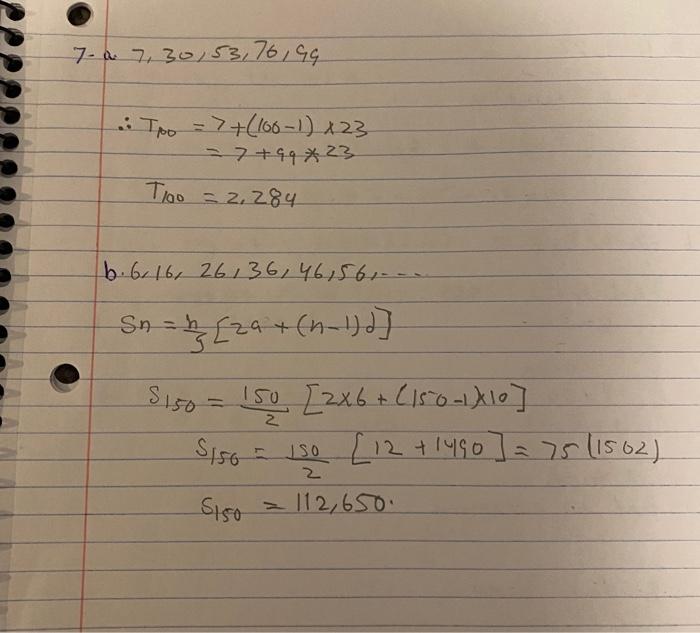 7-a 7, 30, 53, 76, 99
∴ T100 = 7+(100-1) x23
= 7 +99 x 23
T100 = 2,284
b. 6, 16, 26, 36, 46, 56, ----
Sn = n/2 [2a + (n-1)d]
S150 = 150/2 [2x6 + (150-1)x10]
S150 = 150/2 [12 + 1490] = 75 (1502)
S150 = 112,650.